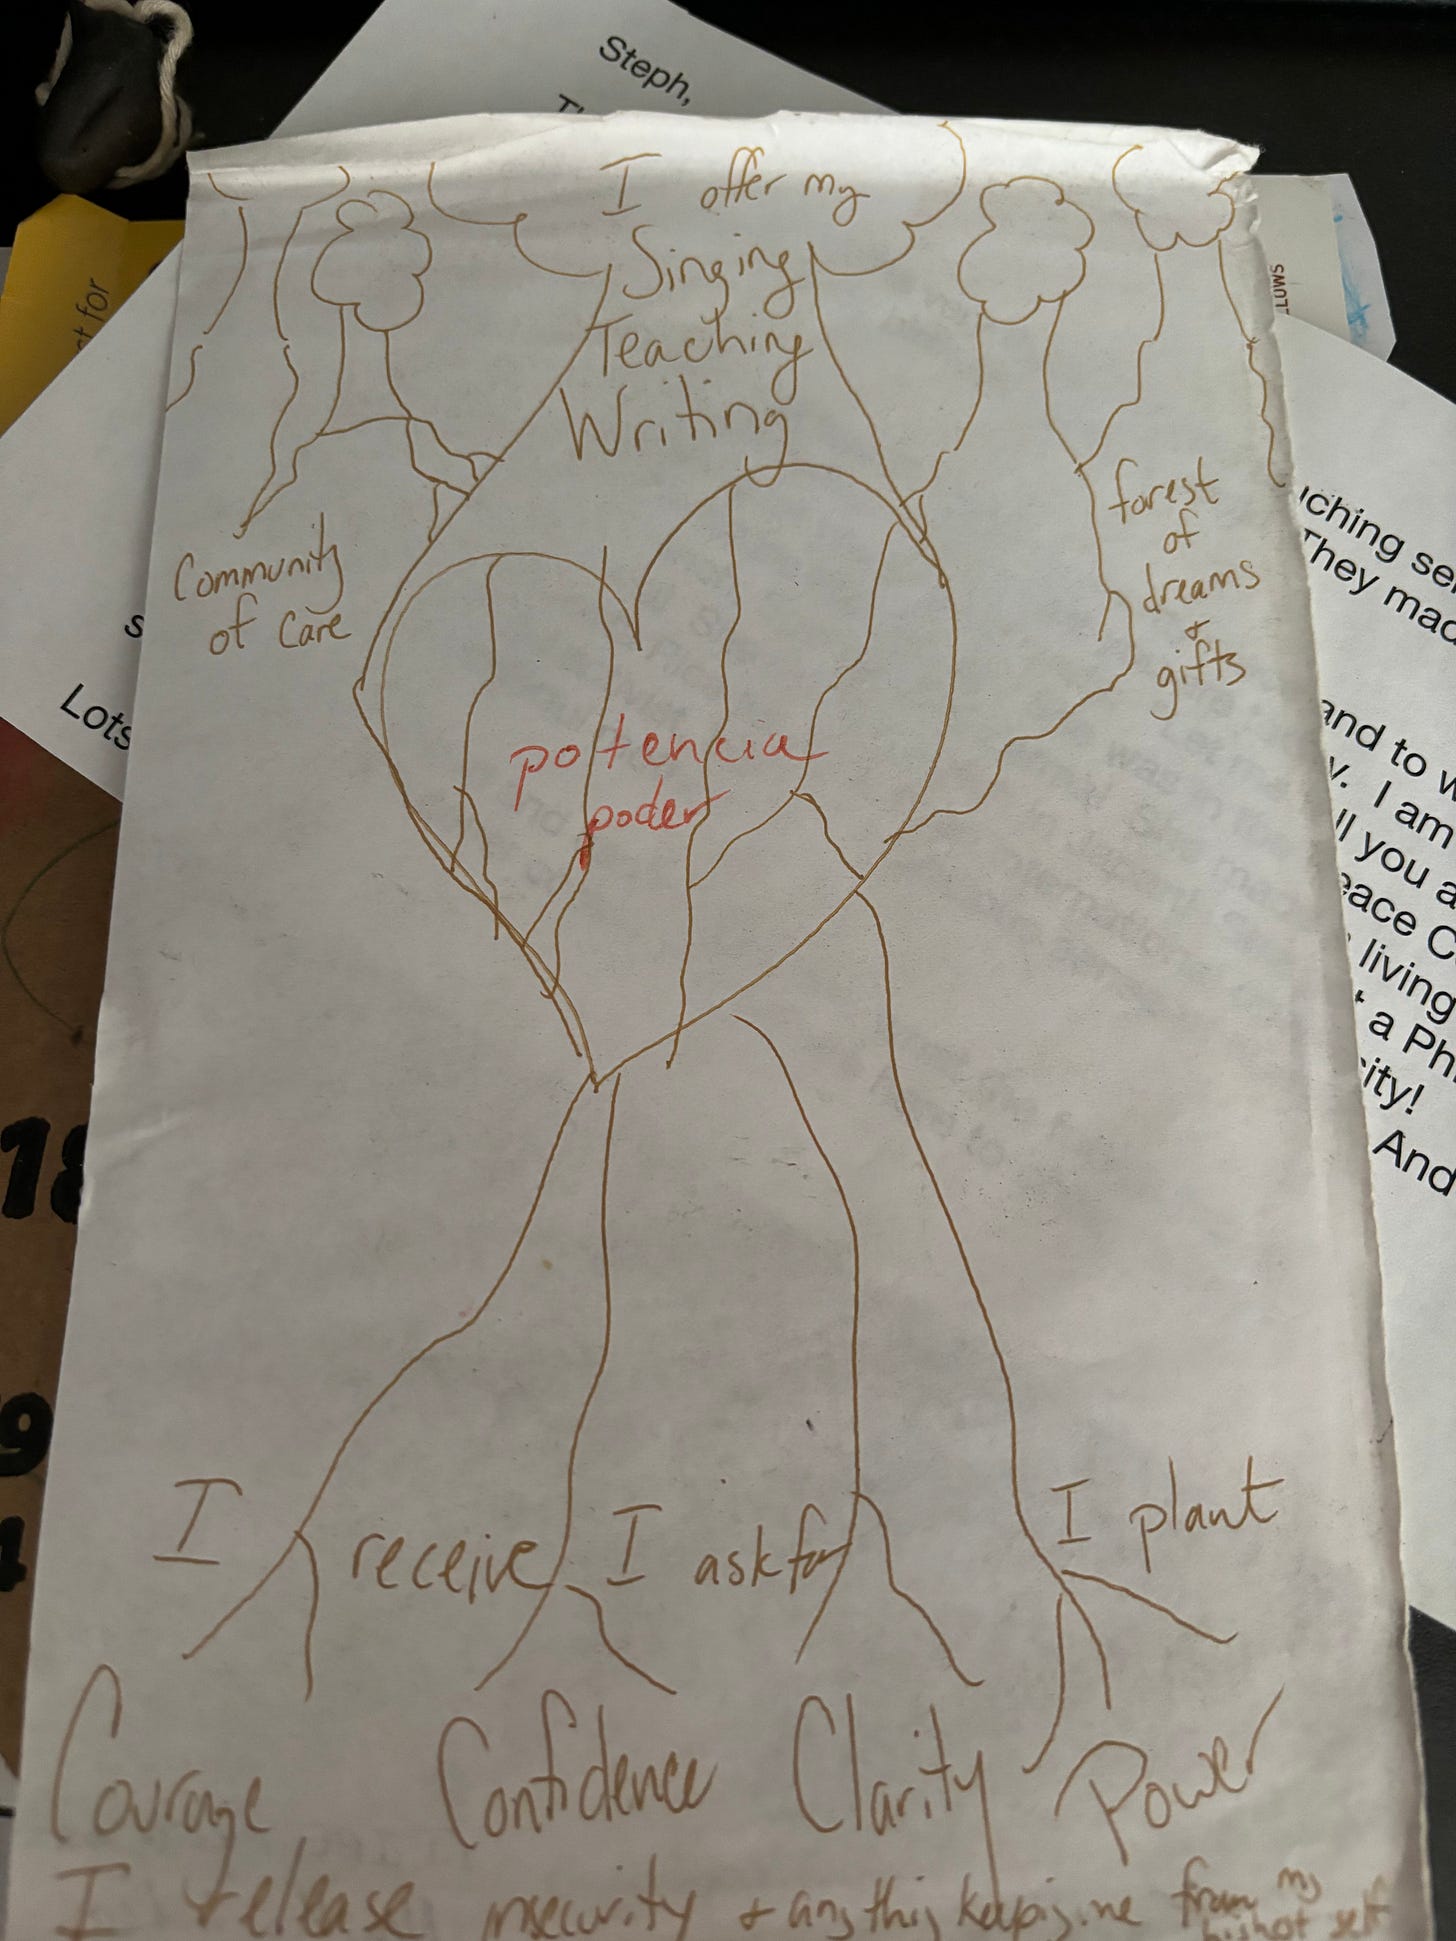 Steph,
I offer my
Singing
Teaching
Writing
Community
of Care
forest
of
dreams
+
gifts
potencia
poder
I receive I ask for I plant
Courage Confidence Clarity Power
I release insecurity + anything keeping me from my
highest self
for
Lots
18
9
ching
They mad
and to w
y. I am
ll you a
eace C
living
t a Ph
city!
And